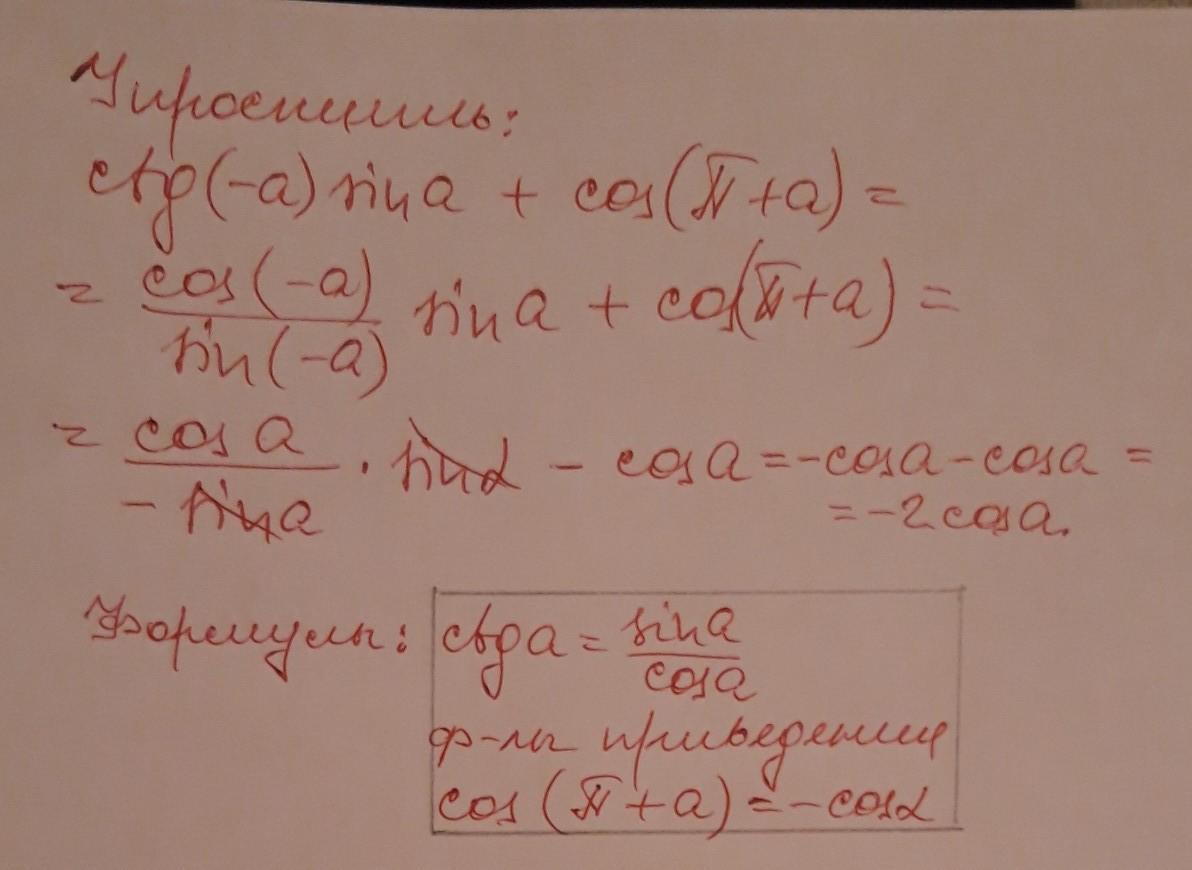 Упростить:
ctg(-a) sin a + cos(π+a) =
= cos(-a) / sin(-a) sin a + cos(π+a) =
= cos a / -sin a · sin α - cos a = -cos a - cos a =
= -2 cos a.
Формулы: ctg a = sin a / cos a
ф-лы приведения
cos (π+a) = -cos α